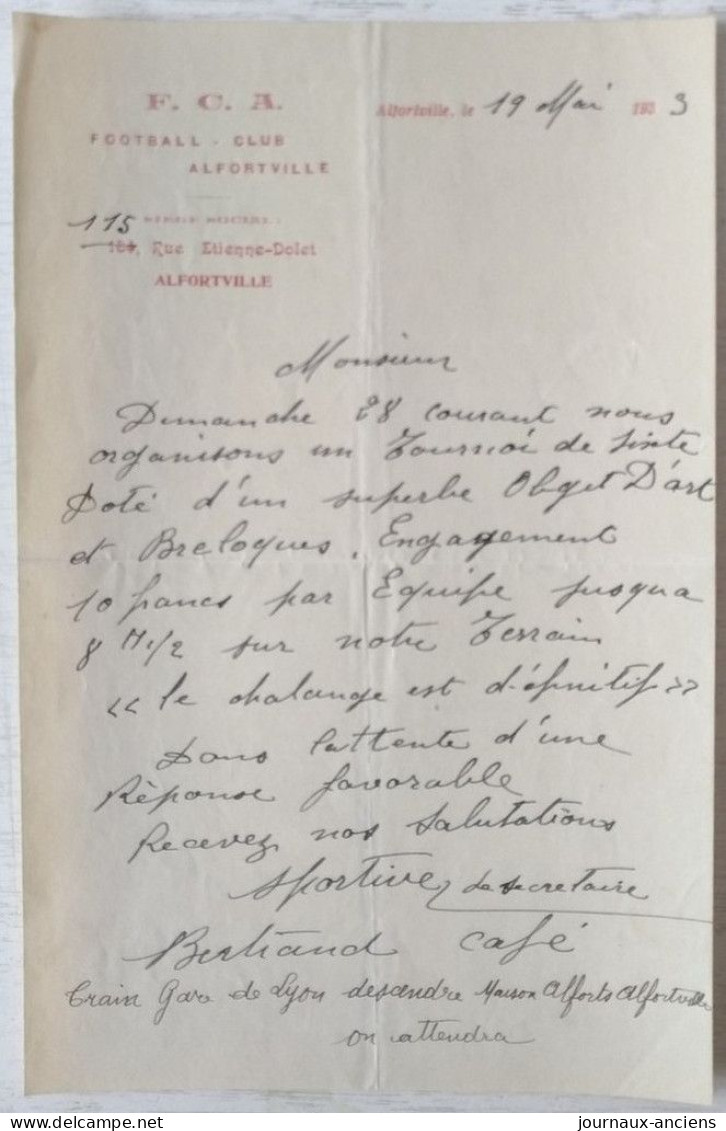 F. C. A.
FOOTBALL - CLUB
ALFORTVILLE
Alfortville, le 19 Mai 1933
SIEGE SOCIAL :
115
Rue Etienne-Dolet
ALFORTVILLE
Monsieur
Dimanche 28 courant nous
organisons un Tournoi de sixte
Doté d'un superbe Objet D'art
et Breloques. Engagement
10 francs par Equipe jusqu'a
8 H 1/2 sur notre Terrain
<< le chalange est définitif >>
Dans lattente d'une
Réponse favorable
Recevez nos Salutations
Sportive Le secretaire
Bertrand café
Train Gare de Lyon desendre Maison Alforts Alfortville
on attendra
journaux-anciens